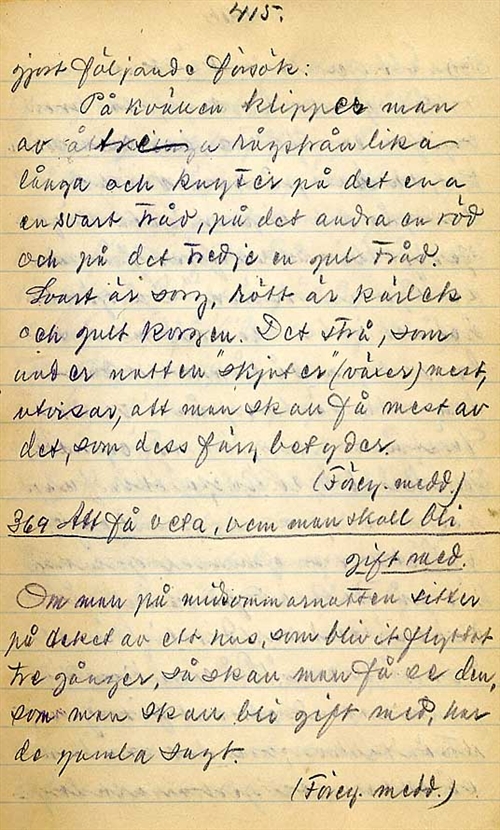 415.
gjort följande försök:
På kvällen klipper man
av tre rågstrån lika
långa och knyter på det ena
en svart tråd, på det andra en röd
och på det tredje en gul tråd.
Svart är sorg, rött är kärlek
och gult korgen. Det strå, som
under natten "skjuter" (växer) mest,
utvisar, att man skall få mest av
det, som dess färg betyder.
(Föreg. medd.)
369 Att få veta, vem man skall bli
gift med.
Om man på midsommarnatten sitter
på taket av ett hus, som blivit flyttat
tre gånger, så skall man få se den,
som man skall bli gift med, har
de gamla sagt.
(Föreg. medd.)